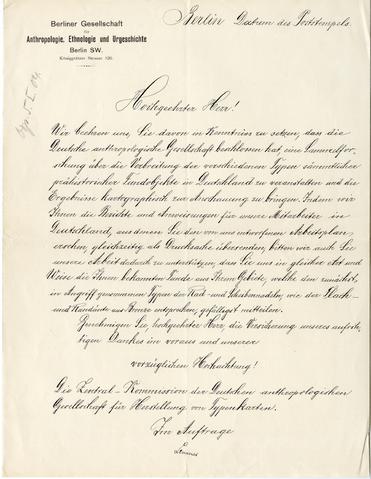 Berliner Gesellschaft
für
Anthropologie, Ethnologie und Urgeschichte
Berlin SW.
Königgrätzer Strasse 120.
Berlin Datum des Poststempels.
Hochgeehrter Herr!
Wir beehren uns, Sie davon in Kenntniss zu setzen, dass die
Deutsche anthropologische Gesellschaft beschlossen hat, eine Sammelfor-
schung über die Verbreitung der verschiedenen Typen sämmtlicher
prähistorischer Fundobjekte in Deutschland zu veranstalten und die
Ergebnisse kartographisch zur Anschauung zu bringen. Indem wir
Ihnen die Berichte und Anweisungen für unsere Mitarbeiter in
Deutschland, aus denen Sie das von uns entworfene Arbeitsplan
ersehen, gleichzeitig als Drucksache übersenden, bitten wir auch Sie
unsere Arbeit dadurch zu unterstützen, dass Sie uns in gleicher Art und
Weise die Ihnen bekannten Funde aus Ihrem Gebiete, welche den zunächst
in Angriff genommenen Typen der Rad- und Scheibennadeln, wie der Flach-
und Randäxte aus Bronze entsprechen, gefälligst mitteilen.
Genehmigen Sie, hochgeehrter Herr, die Versicherung unseres aufrich-
tigen Dankes im voraus und unserer
vorzüglichen Hochachtung!
Die Zentral-Kommission der Deutschen anthropologischen
Gesellschaft für Herstellung von Typenkarten.
Im Auftrage
Lissauer